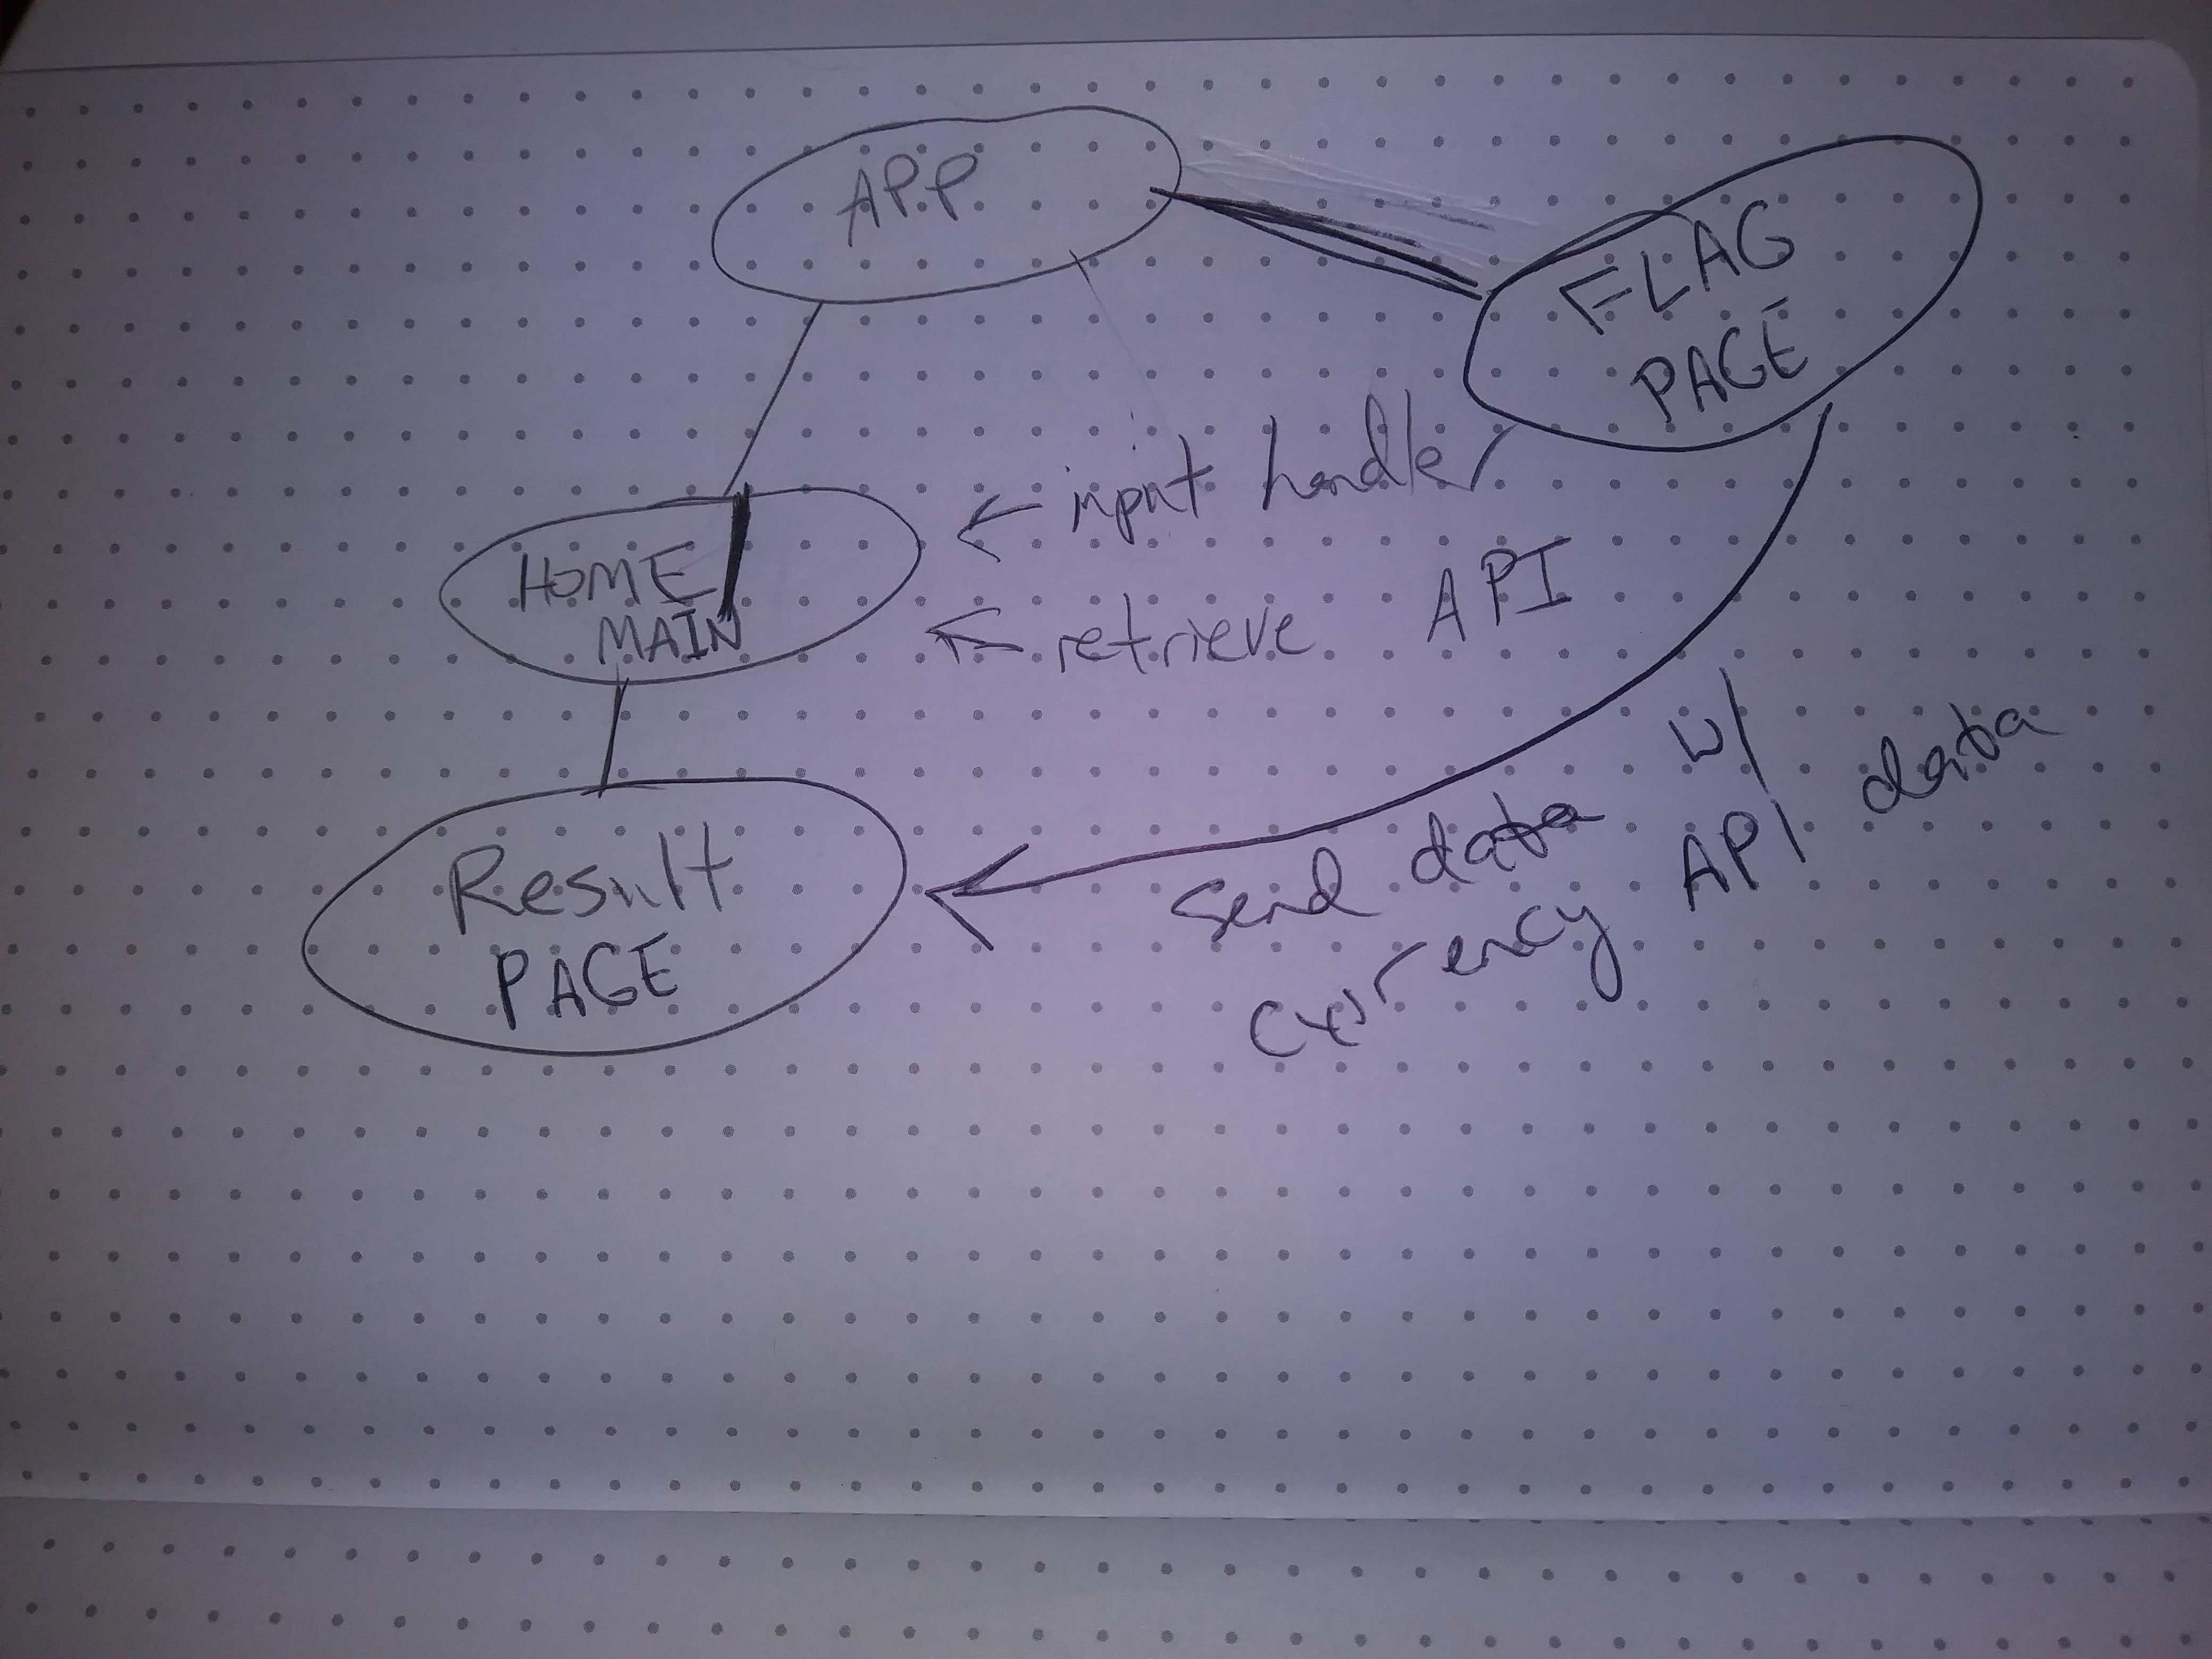 APP
FLAG
PAGE
HOME
MAIN
← input handle
← retrieve API
Result
PAGE
send data w/ data
Currency API